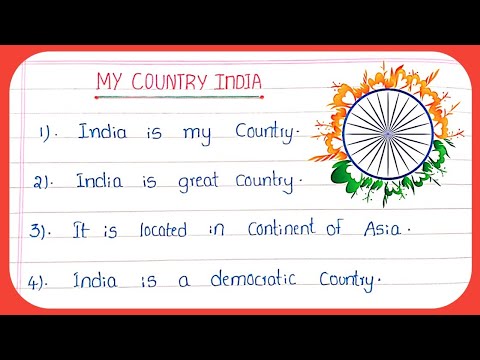 MY COUNTRY INDIA
1). India is my Country.
2). India is great country.
3). It is located in Continent of Asia.
4). India is a democratic Country.